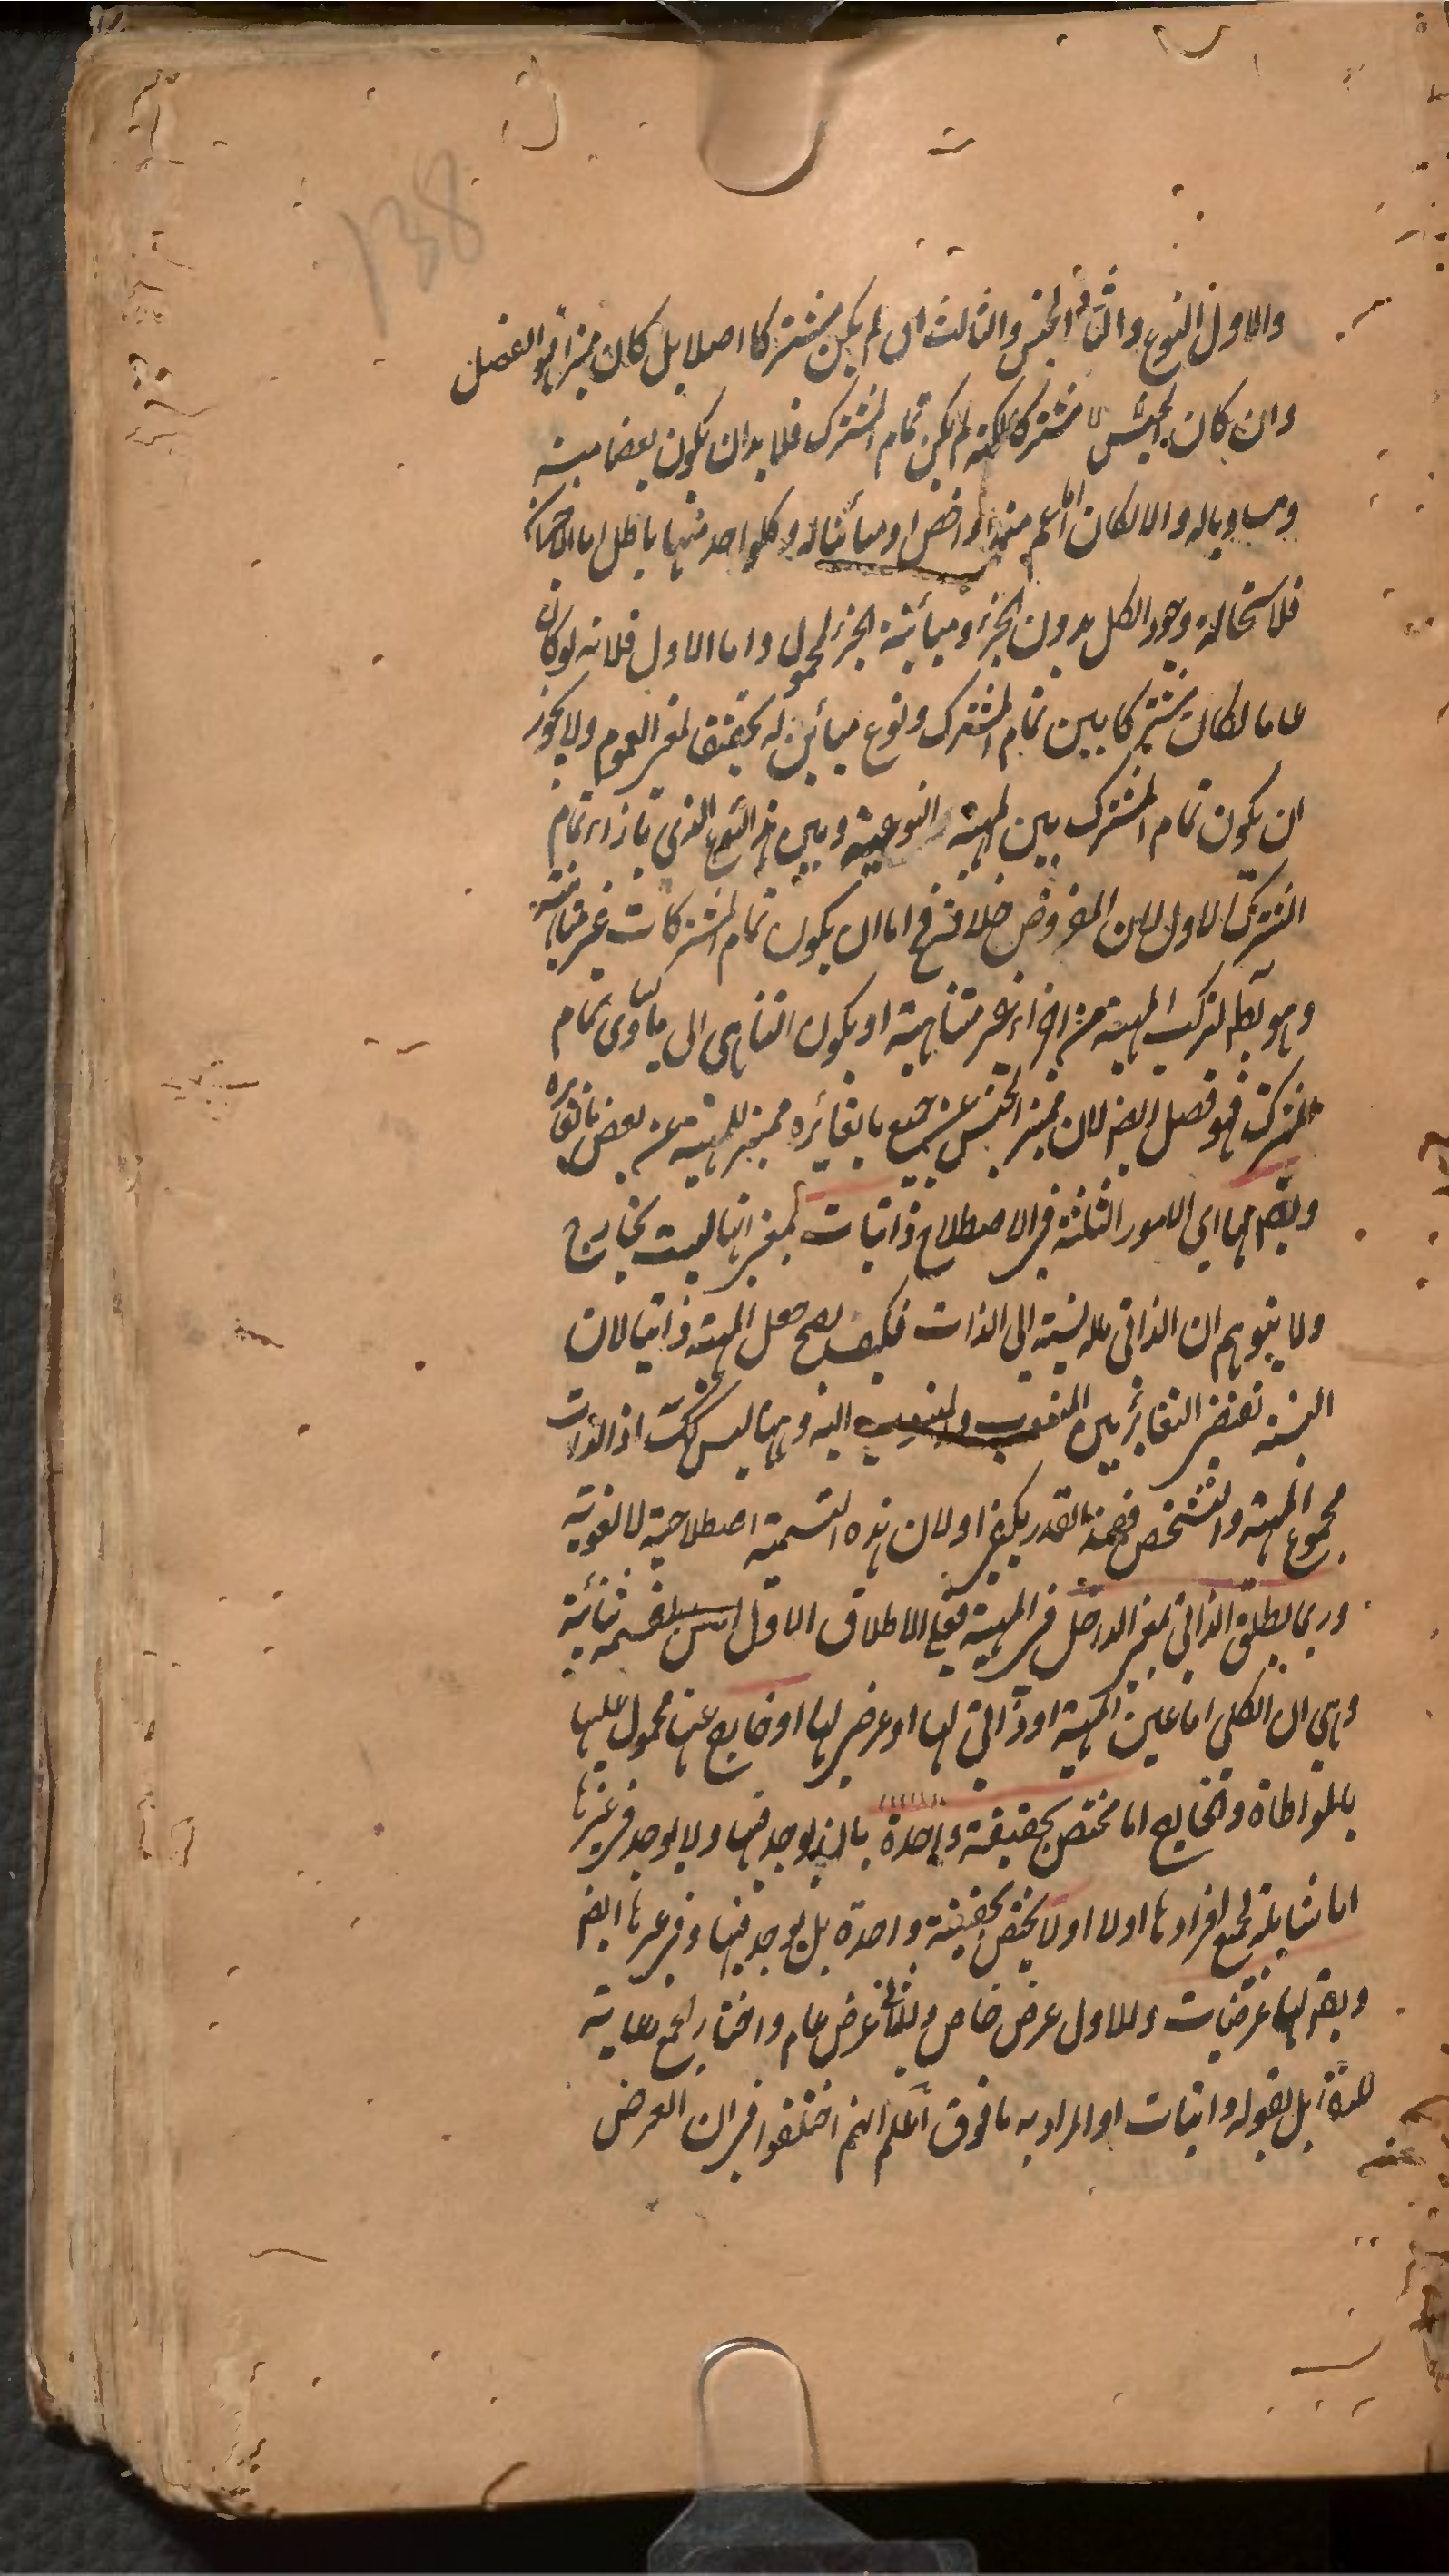 138
والاول النوع والثانی الجنس والثالث ان لم یکن مشترکا اصلا بل کان ممیزا فهو الفصل
وان کان الجنس مشترکا لکنه لم یکن تمام المشترک فلا بد ان یکون بعضا منه
ومساویا له والا لکان اما اعم منه او اخص او مبائنا له وکلواحد منها باطل اما الاخیران
فلاستحالة وجود الکل بدون الجزء ومبائنة الجزء المحمول واما الاول فلانه لو کان
عاما لکان مشترکا بین تمام المشترک ونوع مبائن له تحقیقا لمعنی العموم ولا یجوز
ان یکون تمام المشترک بین المهیة النوعیة وبین هذا النوع الذی بازاء تمام
المشترک الاول لان المفروض خلافه فح اما ان یکون تمام المشترکات غیر متناهیة
وهو بط لترکب المهیة من اجزاء غیر متناهیة او یکون التناهی الی ما یساوی تمام
المشترک فهو فصل ایض لان ممیز الجنس عن جمیع ما یغائره ممیز للمهیة عن بعض ما یغائره
ویقم لها ای الامور الثلثة فی الاصطلاح ذاتیات بمعنی انها لیست بخارج
ولا یتوهم ان الذاتی ماله نسبة الی الذات فکیف یصح جعل المهیة ذاتیا لان
النسبة تقتضی التغائر بین المنسوب والمنسوب الیه وههنا لیس کک اذ الذات
مجموع المهیة والتشخص فهذا القدر یکفی اولان هذه التسمیة اصطلاحیة لا لغویة
وربما یطلق الذاتی بمعنی الداخل فی المهیة فعلی الاطلاق الاول القسمة ثنائیة
وهی ان الکلی اما عین المهیة او ذاتی لها او عرضی لها او خارج عنها محمول علیها
بالمواطاة والخارج اما مختص بحقیقة واحدة بان یوجد فیها ولا یوجد فی غیرها
اما شاملة لجمیع افرادها اولا او لا یختص بحقیقة واحدة بل یوجد فیها وفی غیرها ایض
ویقم لها عرضیات وللاول عرض خاص وللثانی عرض عام واختار الجمع رعایة
للتقابل بقوله ذاتیات او المراد به ما فوق اعلم انهم اختلفوا فی ان العرضی